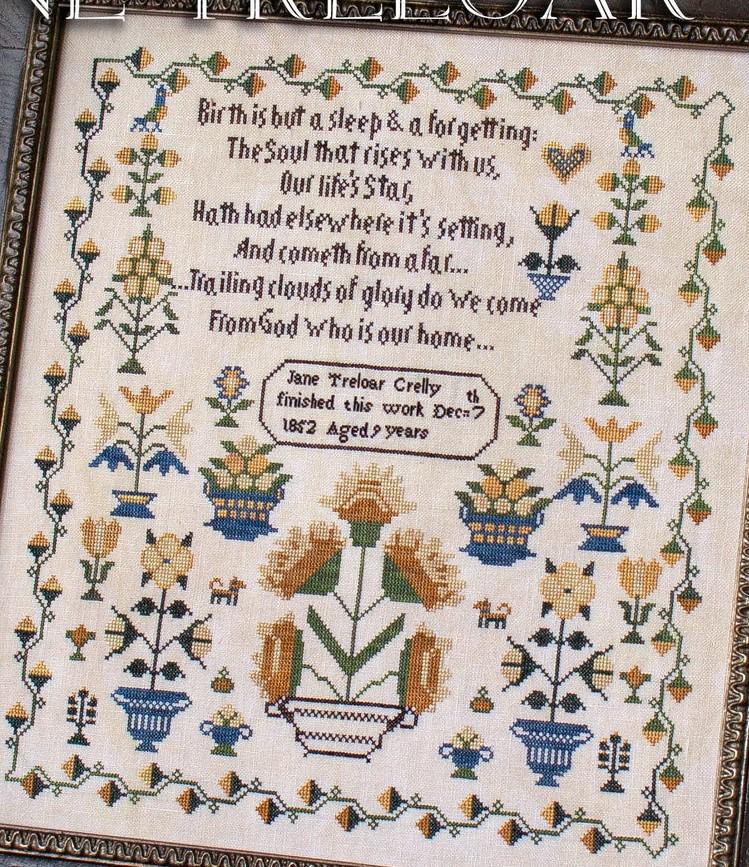 NE TRELOAR
Birth is but a sleep & a forgetting:
The Soul that rises with us,
Our life's Star,
Hath had elsewhere it's setting,
And cometh from afar...
...Trailing clouds of glory do we come
From God who is our home...
Jane Treloar Grelly
finished this work Dec= 7th
1852 Aged 9 years